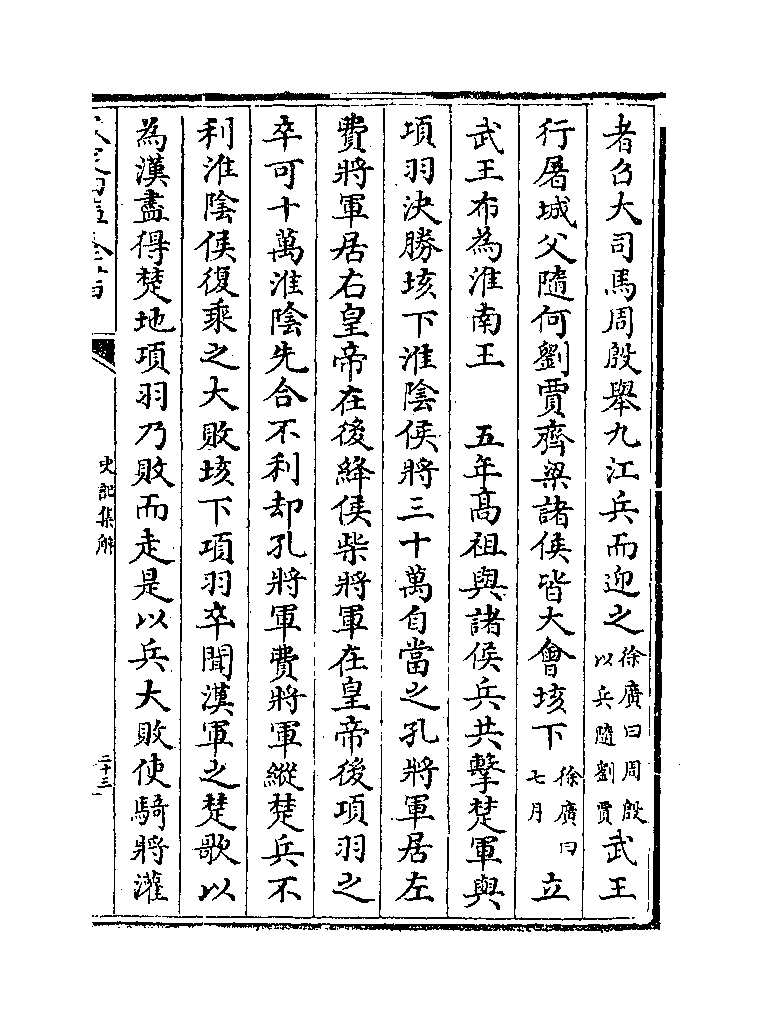 者召大司馬周殷舉九江兵而迎之徐廣曰周殷以兵隨劉賈武王
行屠城父隨何劉賈齊梁諸侯皆大會垓下徐廣曰七月立
武王布為淮南王　五年髙祖與諸侯兵共擊楚軍與
項羽決勝垓下淮陰侯將三十萬自當之孔將軍居左
費將軍居右皇帝在後絳侯柴將軍在皇帝後項羽之
卒可十萬淮陰先合不利却孔將軍費將軍縱楚兵不
利淮陰侯復乘之大敗垓下項羽卒聞漢軍之楚歌以
為漢盡得楚地項羽乃敗而走是以兵大敗使騎將灌
史記集解
二十三